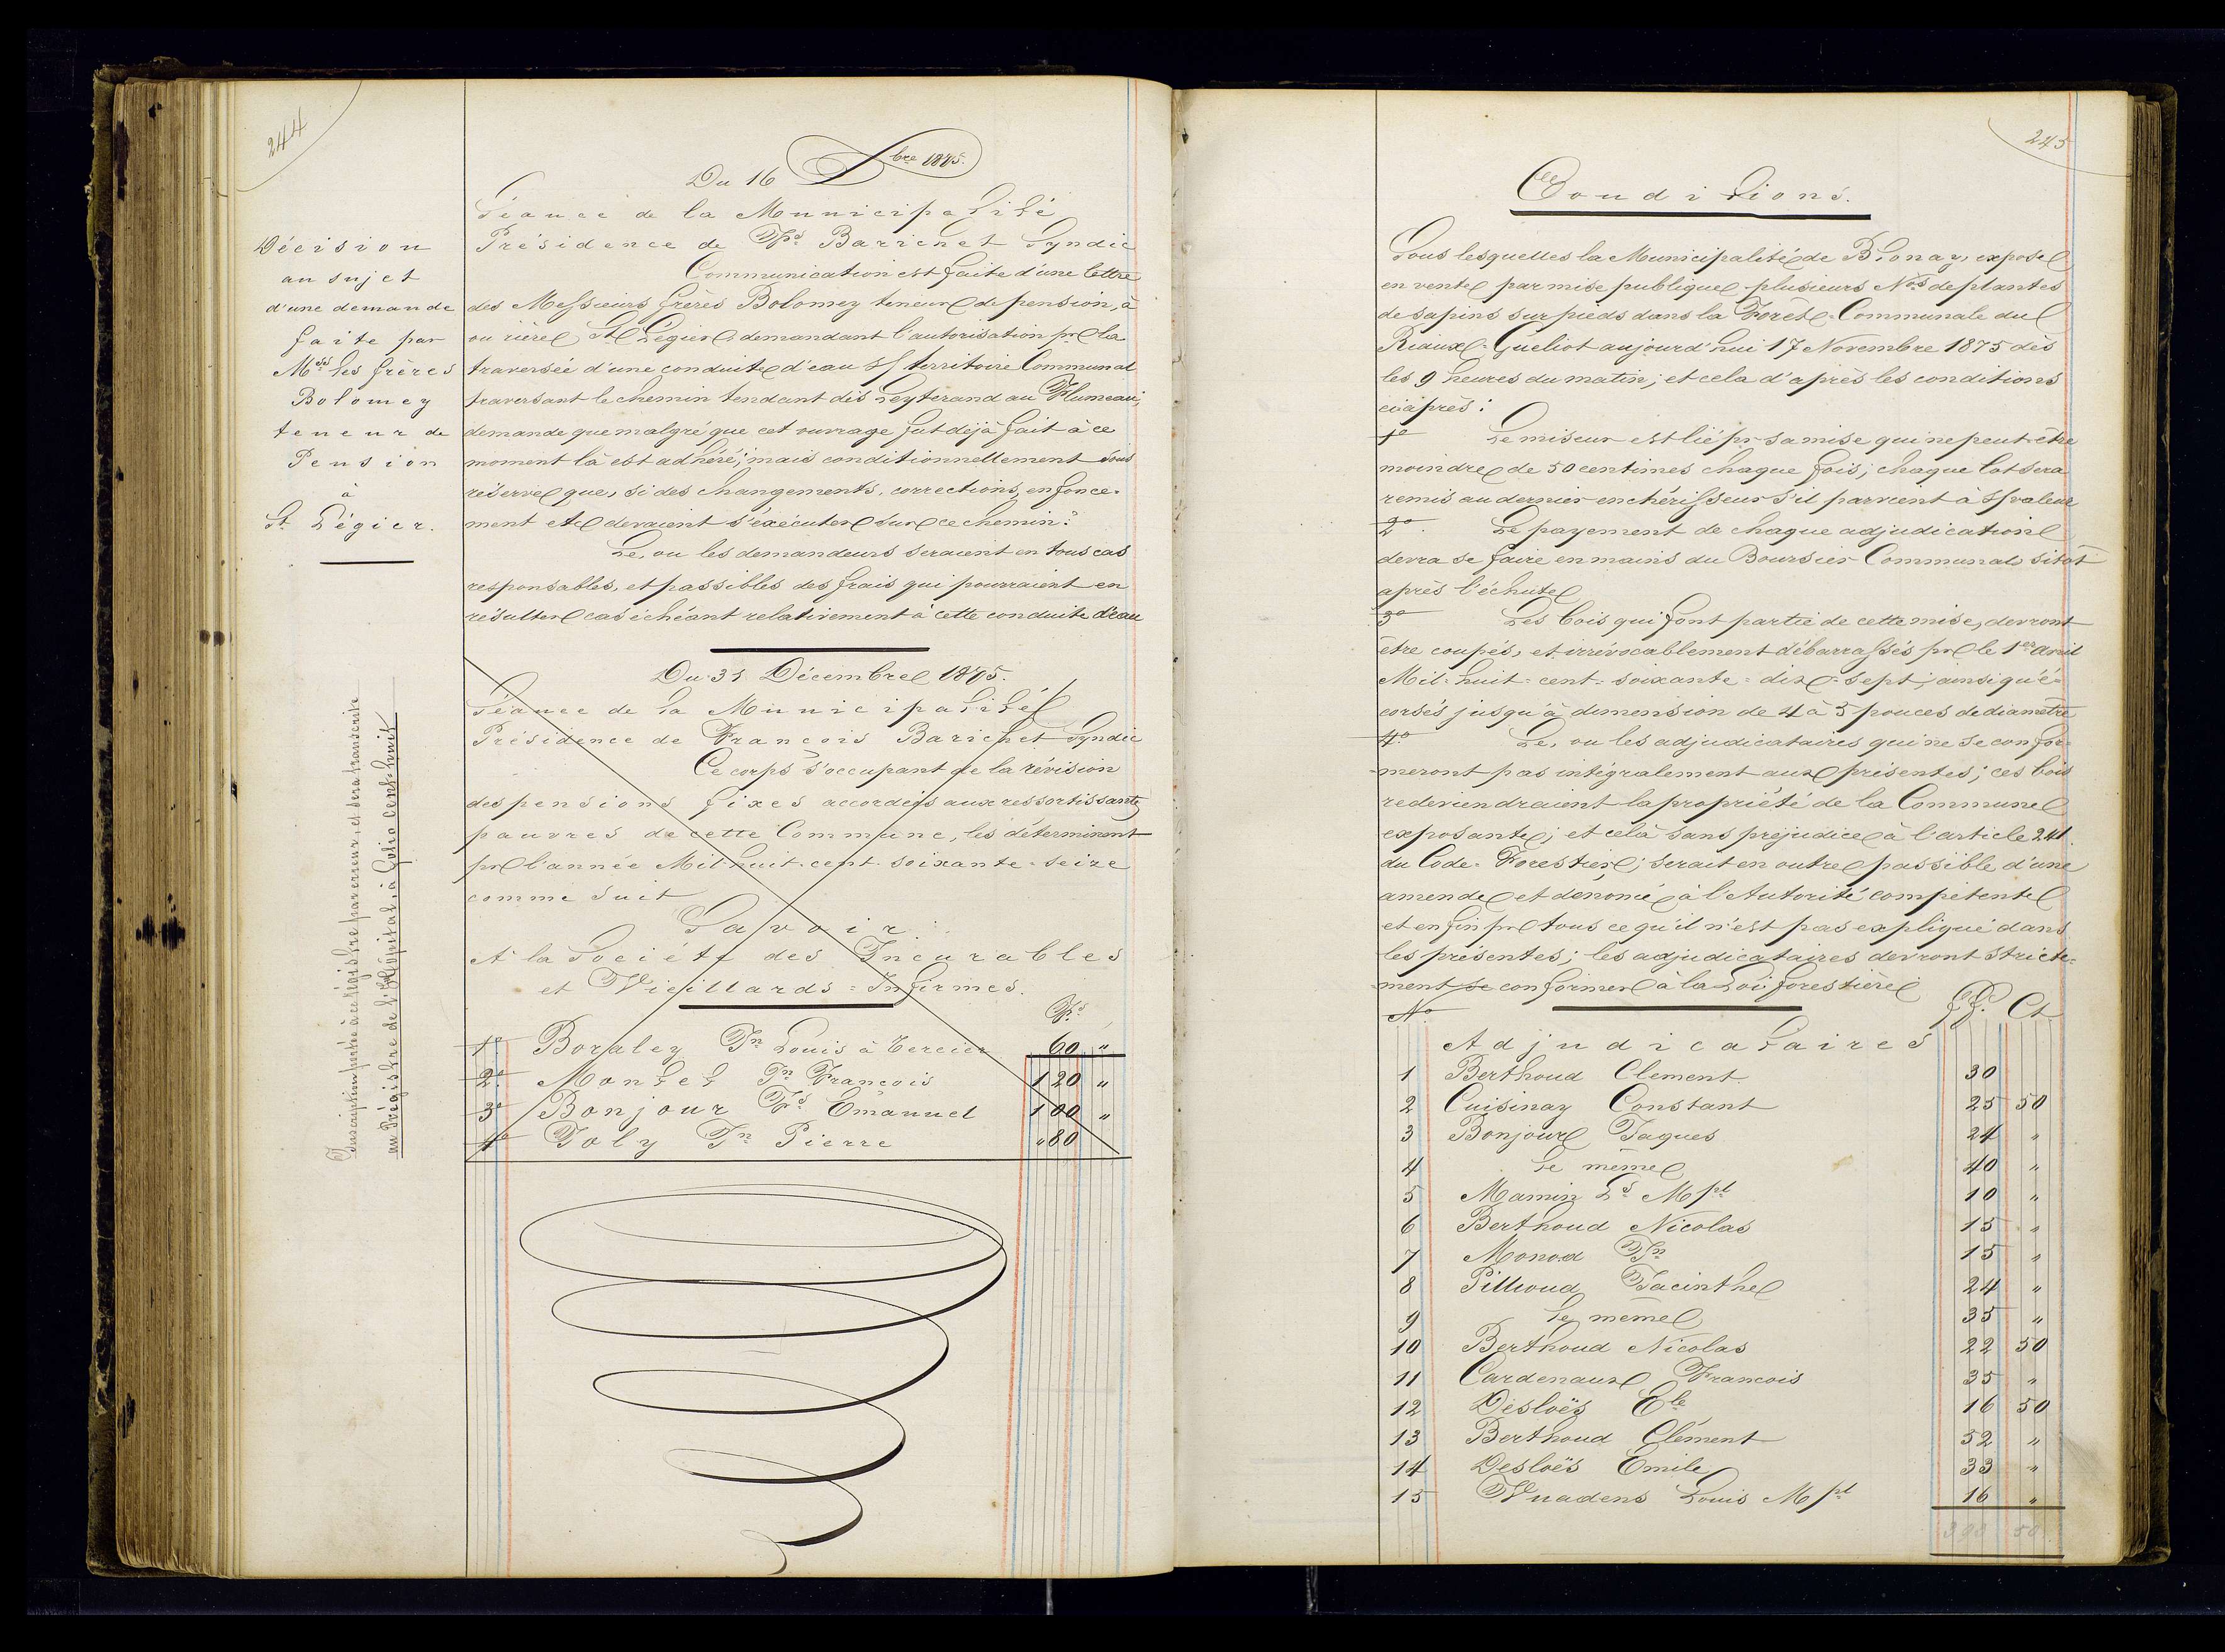 244
Du 16 Xbre 1875.
Séance de la Municipalité
Présidence de Fs Barichet Syndic
Communication est faite d'une lettre
des Messieurs frères Bolomey teneur de pension, à
ou rière St Légier, demandant l'autorisation pr la
traversée d'une conduite d'eau s/ territoire Communal
traversant le chemin tendant dès Leyterand au Flumeau;
demande que malgré que cet ouvrage fut déjà fait à ce
moment là est adhéré; mais conditionnellement sous
réserve que, si des changements, corrections, enfonce-
ment etc devraient s'exécuter sur ce chemin:
Le, ou les demandeurs seraient en tous cas
responsables, et passibles des frais qui pourraient en
résulter cas échéant relativement à cette conduite d'eau
Décision
au sujet
d'une demande
faite par
Mrs les frères
Bolomey
teneur de
Pension
à
St Légier.
Du 31 Décembre 1875.
Séance de la Municipalité
Présidence de Francois Barichet Syndic
Ce corps s'occupant de la révision
des pensions fixes accordées aux ressortissants
pauvres de cette Commune, les déterminent
pr l'année Mil-huit-cent-soixante-seize
comme suit
Savoir
A la Société des Incurables
et Vieillards-Infirmes.
Fs
1o Boraley Jn Louis à Tercier 60 "
2o Montet Jn Francois 120 "
3o Bonjour Fs Emanuel 100 "
4o Joly Jn Pierre " 80
Inscription portée à ce régistre par erreur, et sera transcrite
au Régistre de l'Hôpital, à folio Cent-huit
245
Conditions.
Sous lesquelles la Municipalité de Blonay, expose
en vente par mise publique plusieurs Nos de plantes
de sapins sur pieds dans la Forêt-Communale du
Riaux-Gueliot aujourd'hui 17 Novembre 1875 dès
les 9 heures du matin; et cela d'après les conditions
ci-après:
1o Le miseur est lié pr sa mise qui ne peut être
moindre de 50 centimes chaque fois; chaque lot sera
remis au dernier enchérisseur s'il parvient à s/ valeur
2o Le payement de chaque adjudication
devra se faire en mains du Boursier Communal, sitôt
après l'échute
3o Les bois qui font partie de cette mise, devront
être coupés, et irrévocablement débarrassés pr le 1er avril
Mil-huit-cent-soixante-dix-sept; ainsi qu'é-
corsés jusqu'à dimension de 4 à 5 pouces de diamètre
4o Le, ou les adjudicataires qui ne se confor-
meront pas intégralement aux présentes; ces bois
redeviendraient la propriété de la Commune
exposante; et celà sans préjudice à l'article 241.
du Code-Forestier; serait en outre passible d'une
amende et dénoncé à l'Autorité compétente
et enfin pr tous ce qu'il n'est pas expliqué dans
les présentes; les adjudicataires devront stricte-
ment se conformer à la Loi forestière
No Ff. Ct.
Adjudicataires
1 Berthoud Clement 30
2 Cuisinay Constant 25 50
3 Bonjour Jaques 24 "
4 Le même 40 "
5 Mamin Ls Mpl 10 "
6 Berthoud Nicolas 15 "
7 Monod Jn 15 "
8 Pillioud Jacinthe 24 "
9 Le même 35 "
10 Berthoud Nicolas 22 50
11 Cardenaux Francois 35 "
12 Desloës Ele 16 50
13 Berthoud Clément 52 "
14 Desloës Emile 33 "
15 Vuadens Louis Mpl 16 "